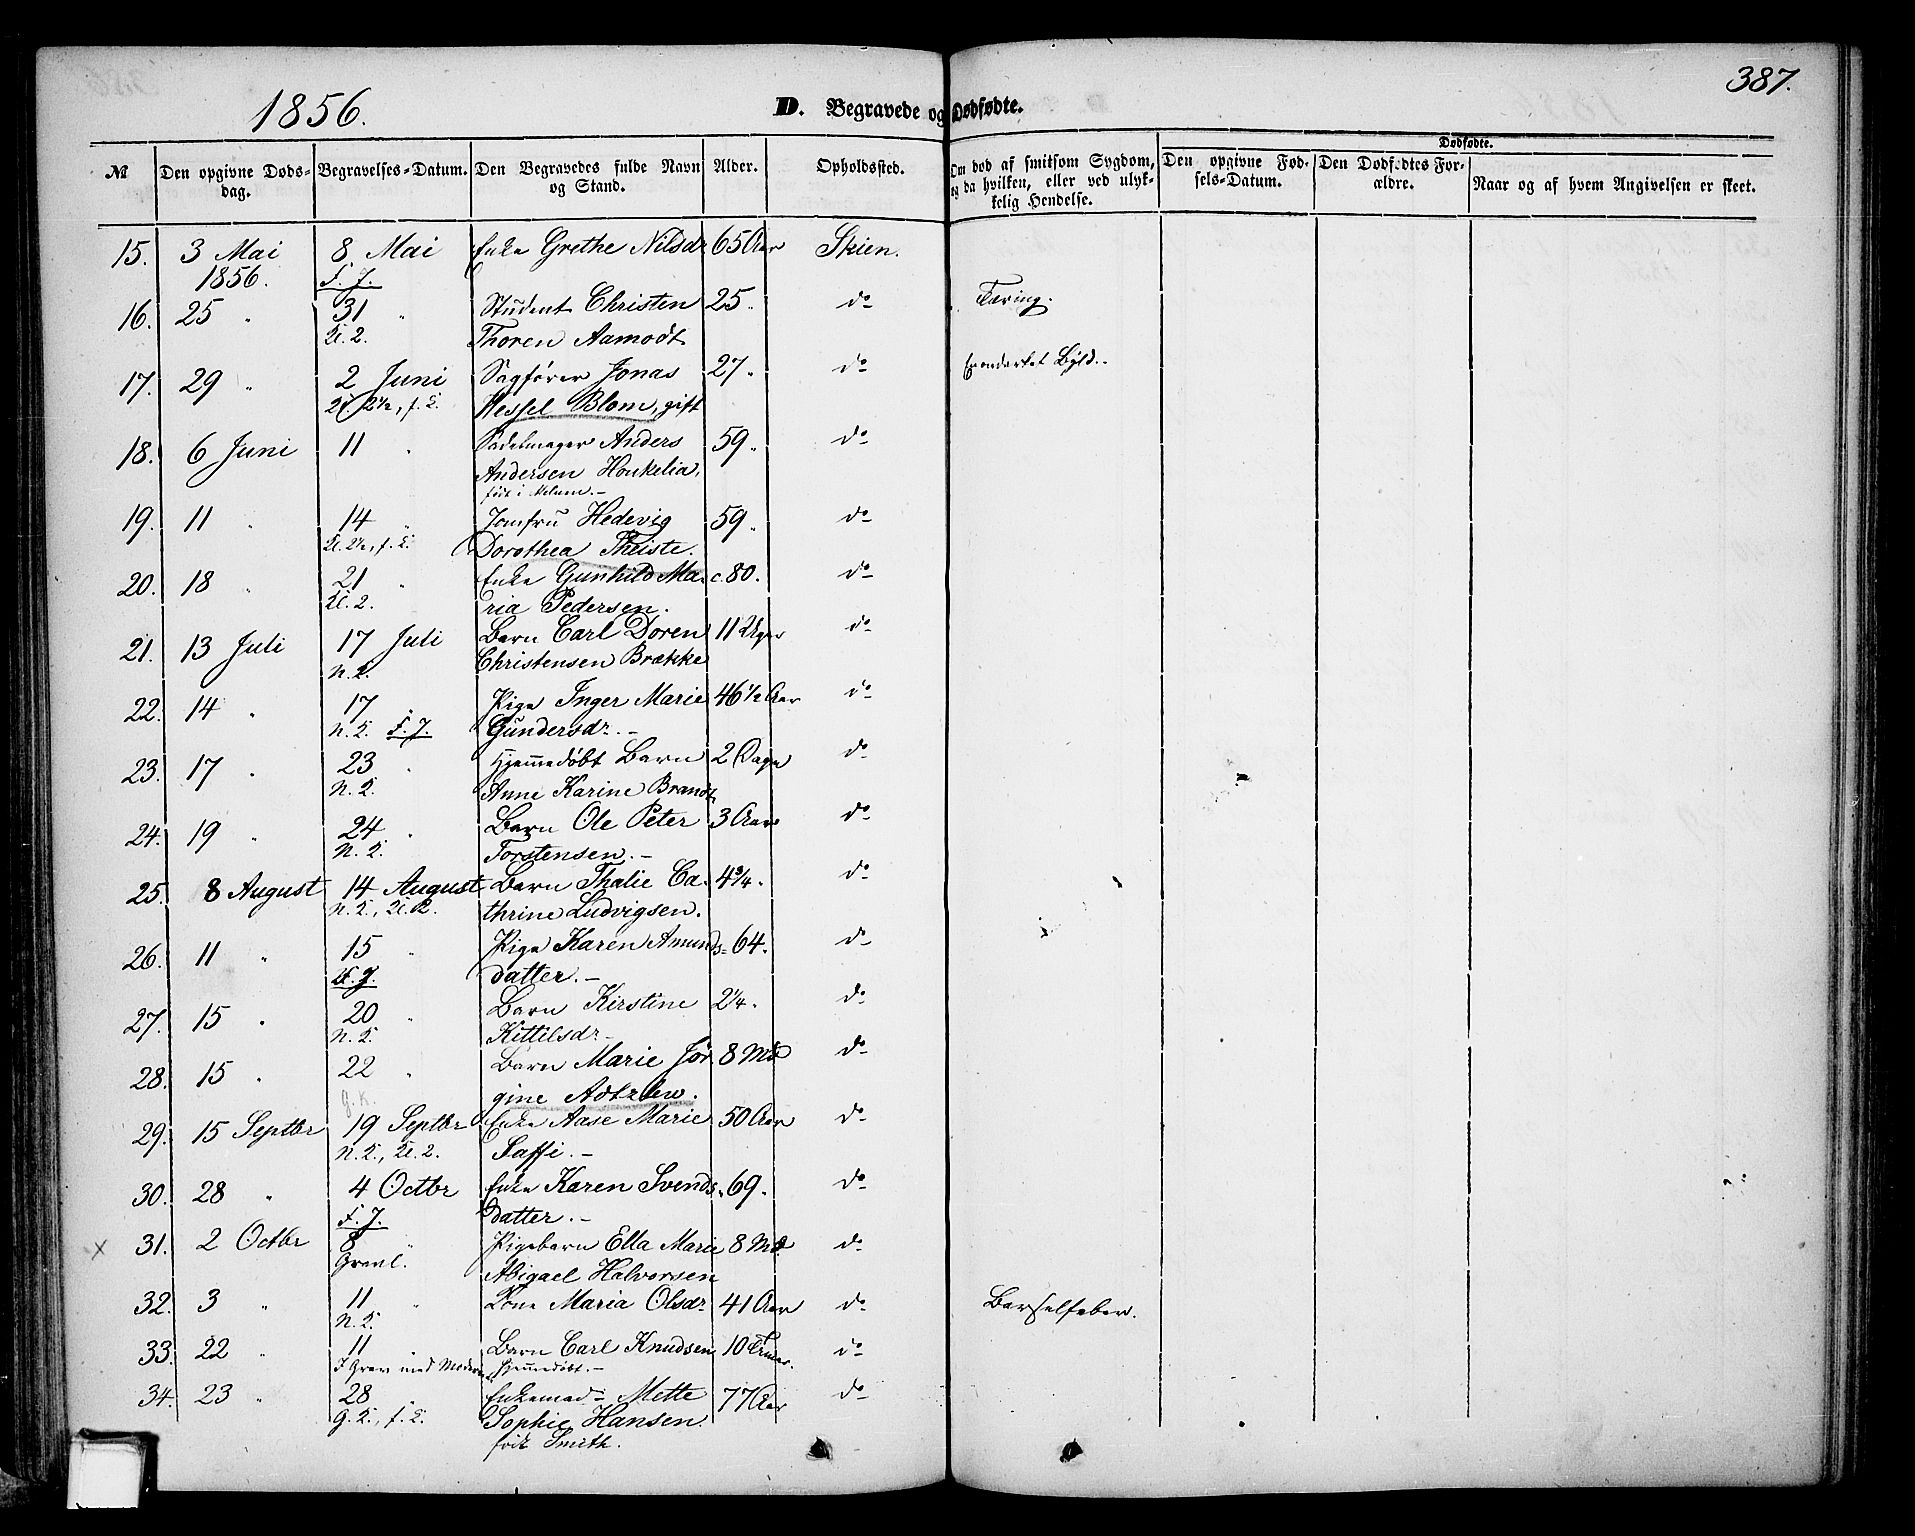 387.
1856.
D. Begravede og Dødfødte.
№
Den opgivne Døds-
dag.
Begravelses-Datum.
Den Begravedes fulde Navn
og Stand.
Alder.
Opholdssted.
Om død af smitsom Sygdom,
og da hvilken, eller ved ulyk-
kelig Hendelse.
Dødfødte.
Den opgivne Fød-
sels-Datum.
Den Dødfødtes For-
ældre.
Naar og af hvem Angivelsen er skeet.
15. 3 Mai 8 Mai Enke Grethe Nilsdr 65 Aar Skien.
1856. F. J.
16. 25 " 31 " Student Christen 25 " do Tæring.
Kl. 2. Thoren Aamodt
17. 29 " 2 Juni Sagfører Jonas 27 " do Byld.
Kl. 2½, f. K. Wessel Blom, gift
18. 6 Juni 11 " Sadelmager Anders 59 " do
Andersen Honkelia,
født i Melum.-
19. 11 " 14 " Jomfru Hedevig 59 " do
Kl. 2½, f. K. Dorothea Theiste.
20. 18 " 21 " Enke Gunhild Ma- c. 80. do
Kl. 2. ria Pedersen.
21. 13 Juli 17 Juli Barn Carl Doren 11 Uger do
N. K. Christensen Brække
22. 14 " 17 " Pige Inger Marie 46½ Aar do
N. K. F. J. Gundersdr.-
23. 17 " 23 " Hjemmedøbt Barn 2 Dage do
N. K. Anne Karine Brandt
24. 19 " 24 " Barn Ole Peter 3 Aar do
N. K. Torstensen.-
25. 8 August 14 August Barn Thalie Ca- 4¾. do
N. K., Kl. 2. thrine Ludvigsen.
26. 11 " 15 " Pige Karen Amunds- 64. do
F. J. datter.-
27. 15 " 20 " Barn Kirstine 2¼. do
N. K. Kittilsdr-
28. 15 " 22 " Barn Marie Jør 8 Md do
g. K. gine
29. 15 Septbr 19 Septbr Enke Aase Marie 50 Aar do
N. K., Kl. 2. Saffi.-
30. 28 " 4 Octbr Enke Karen Svends- 69. do
F. J. datter.-
x 31. 2 Octbr 8 " Pigebarn Ella Marie 8 Md. do
Gravl. Abigael Halvorsen
32. 3 " 11 " Kone Maria Olsdr 41 Aar do Barselfeber.
N. K.
33. 22 " 11 " Barn Carl Knudsen 10 do
I Grav med Moderen Hjemmedøbt.-
34. 23 " 28 Enkemad= Mette 77 Aar do
G. K., f. K. Sophie Hansen
født Smith.